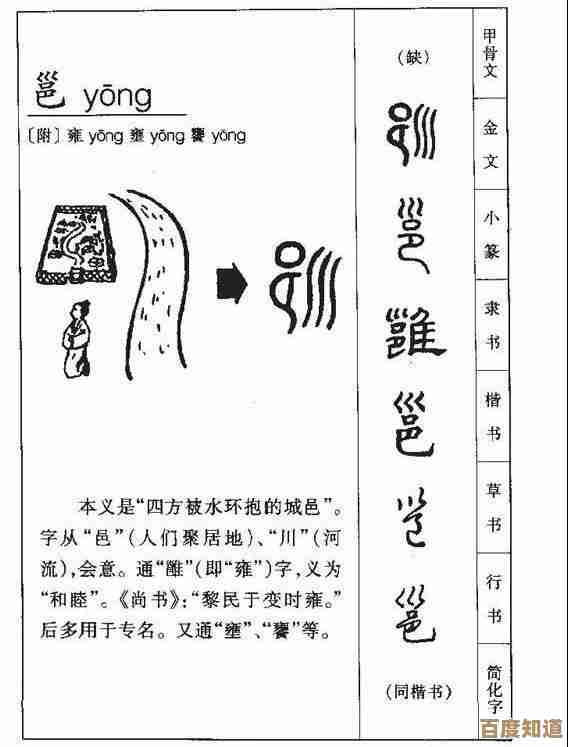 邕 yōng
〔附〕雍 yōng 壅 yōng 饔 yōng
本义是“四方被水环抱的城邑”。
字从“邑”(人们聚居地)、“川”(河
流),会意。通“雝”(即“雍”)字,义为
“和睦”。《尚书》:“黎民于变时雍。”
后多用于专名。又通“壅”、“饔”等。
(缺)
甲骨文
邕
金文
邕
小篆
雝
隶书
邕
楷书
邕
草书
邕
行书
(同楷书)
简化字
百度知道